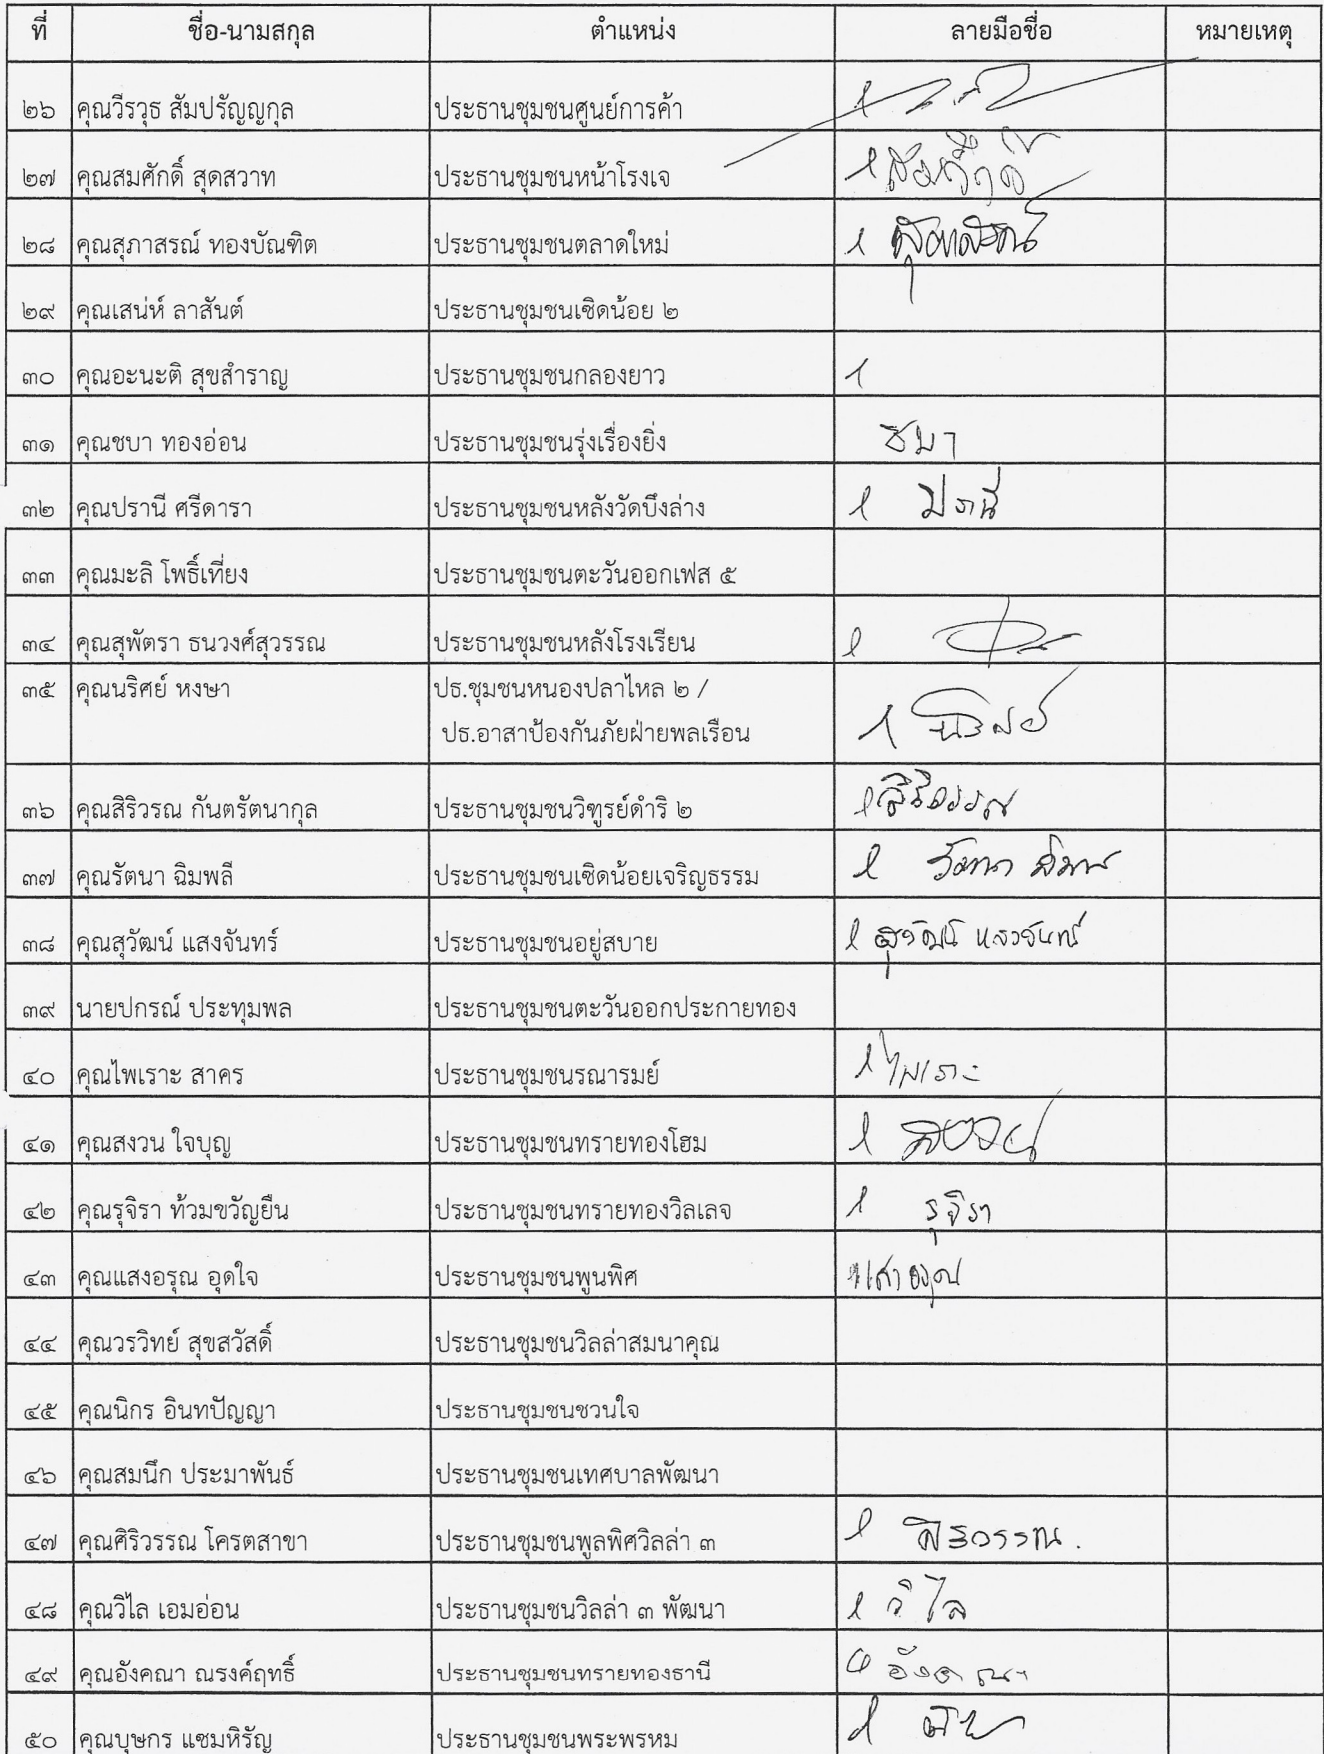 ที่ ชื่อ-นามสกุล ตำแหน่ง ลายมือชื่อ หมายเหตุ
๒๖ คุณวีรวุธ สัมปรัญญกุล ประธานชุมชนศูนย์การค้า
๒๗ คุณสมศักดิ์ สุดสวาท ประธานชุมชนหน้าโรงเจ สมศักดิ์
๒๘ คุณสุภาสรณ์ ทองบัณฑิต ประธานชุมชนตลาดใหม่
๒๙ คุณเสน่ห์ ลาสันต์ ประธานชุมชนเชิดน้อย ๒
๓๐ คุณอะนะติ สุขสำราญ ประธานชุมชนกลองยาว
๓๑ คุณชบา ทองอ่อน ประธานชุมชนรุ่งเรื่องยิ่ง ชบา
๓๒ คุณปรานี ศรีดารา ประธานชุมชนหลังวัดบึงล่าง ปรานี
๓๓ คุณมะลิ โพธิ์เที่ยง ประธานชุมชนตะวันออกเฟส ๕
๓๔ คุณสุพัตรา ธนวงศ์สุวรรณ ประธานชุมชนหลังโรงเรียน
๓๕ คุณนริศย์ หงษา ปธ.ชุมชนหนองปลาไหล ๒ /
ปธ.อาสาป้องกันภัยฝ่ายพลเรือน
๓๖ คุณสิริวรณ กันตรัตนากุล ประธานชุมชนวิฑูรย์ดำริ ๒ สิริวรรณ
๓๗ คุณรัตนา ฉิมพลี ประธานชุมชนเชิดน้อยเจริญธรรม รัตนา
๓๘ คุณสุวัฒน์ แสงจันทร์ ประธานชุมชนอยู่สบาย สุวัฒน์ แสงจันทร์
๓๙ นายปกรณ์ ประทุมพล ประธานชุมชนตะวันออกประกายทอง
๔๐ คุณไพเราะ สาคร ประธานชุมชนรณารมย์ ไพเราะ
๔๑ คุณสงวน ใจบุญ ประธานชุมชนทรายทองโฮม สงวน
๔๒ คุณรุจิรา ท้วมขวัญยืน ประธานชุมชนทรายทองวิลเลจ รุจิรา
๔๓ คุณแสงอรุณ อุดใจ ประธานชุมชนพูนพิศ
๔๔ คุณวรวิทย์ สุขสวัสดิ์ ประธานชุมชนวิลล่าสมนาคุณ
๔๕ คุณนิกร อินทปัญญา ประธานชุมชนชวนใจ
๔๖ คุณสมนึก ประมาพันธ์ ประธานชุมชนเทศบาลพัฒนา
๔๗ คุณศิริวรรณ โครตสาขา ประธานชุมชนพูลพิศวิลล่า ๓ ศิริวรรณ
๔๘ คุณวิไล เอมอ่อน ประธานชุมชนวิลล่า ๓ พัฒนา วิไล
๔๙ คุณอังคณา ณรงค์ฤทธิ์ ประธานชุมชนทรายทองธานี อังคณา
๕๐ คุณบุษกร แซมหิรัญ ประธานชุมชนพระพรหม